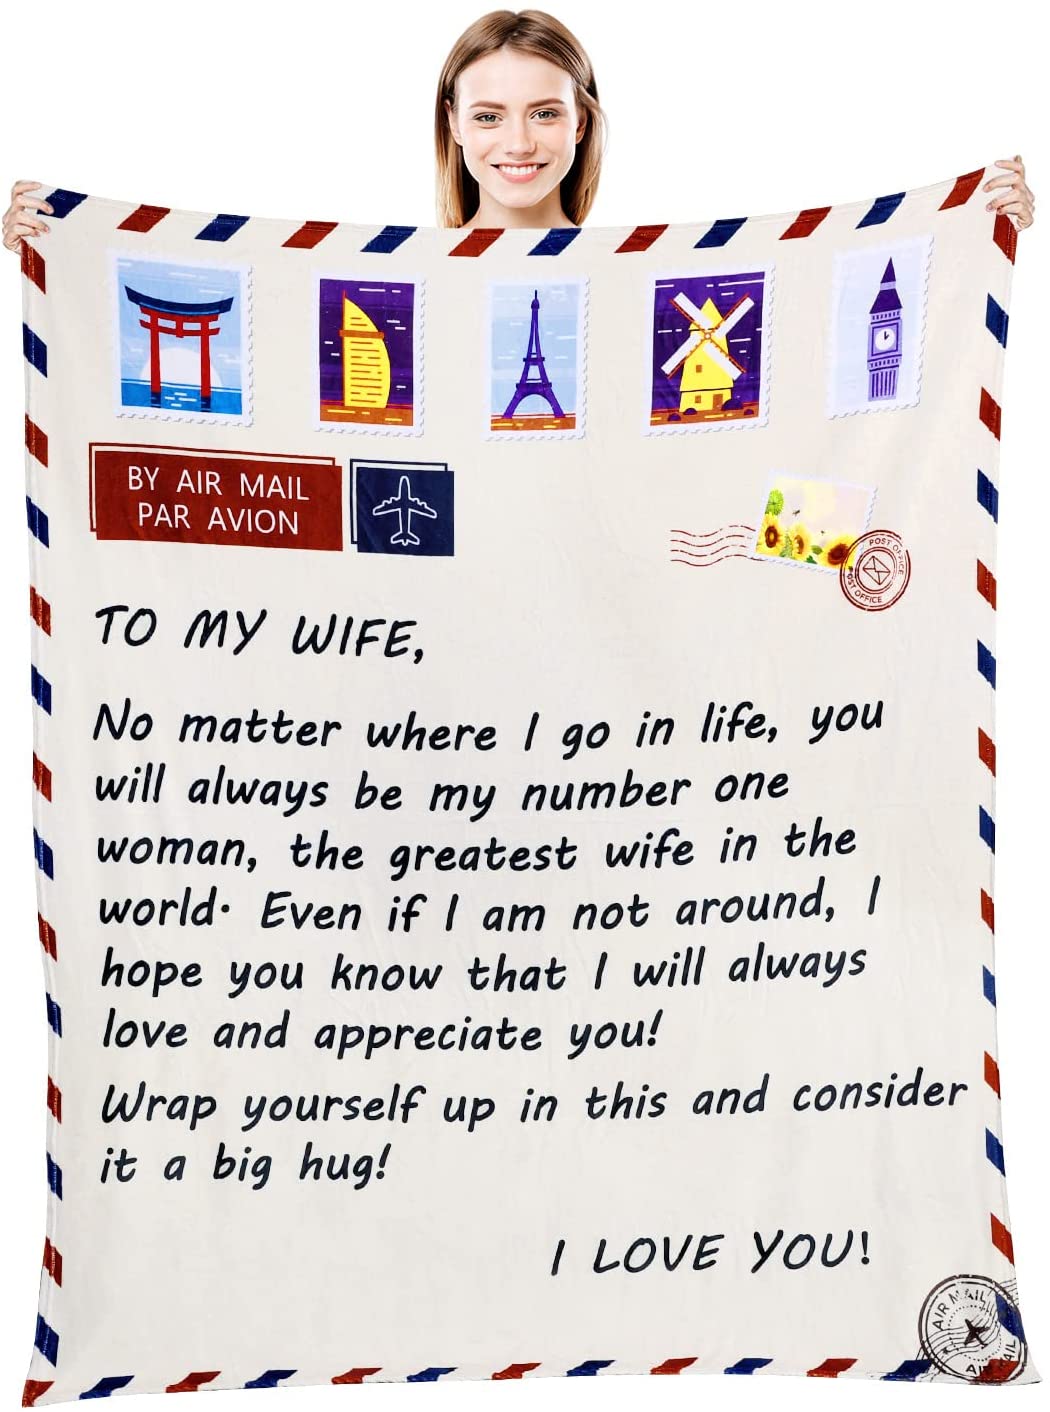 BY AIR MAIL
PAR AVION
POST OFFICE
POST OFFICE
TO MY WIFE,
No matter where I go in life, you
will always be my number one
woman, the greatest wife in the
world. Even if I am not around, I
hope you know that I will always
love and appreciate you!
Wrap yourself up in this and consider
it a big hug!
I LOVE YOU!
AIR MAIL
AIR MAIL